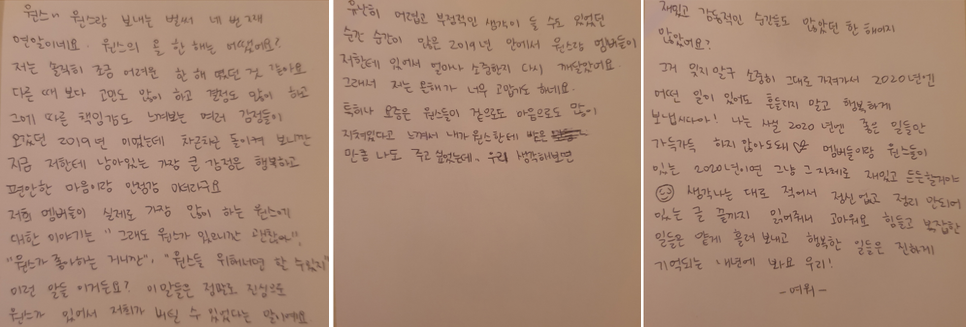 원스~ 원스랑 보내는 벌써 네 번째
연말이네요. 원스의 올 한 해는 어땠어요?
저는 솔직히 조금 어려운 한 해였던 것 같아요
다른 때 보다 고민도 많이 하고 결정도 많이 하고
그에 따른 책임감도 느껴보는 여러 감정들이
오갔던 2019년 이었는데 차근차근 돌이켜 보니깐
지금 저한테 남아있는 가장 큰 감정은 행복하고
편안한 마음이랑 안정감 이더라구요
저희 멤버들이 실제로 가장 많이 하는 원스에
대한 이야기는 "그래도 원스가 있으니깐 괜찮아",
"원스가 좋아하는 거니깐", "원스를 위해서면 할 수 있지"
이런 말들 이거든요? 이 말들은 정말로 진심으로
원스가 있어서 저희가 버틸 수 있었다는 말이에요
유난히 어렵고 부정적인 생각이 들 수도 있었던
순간 순간이 많은 2019년 안에서 원스랑 멤버들이
저한테 있어서 얼마나 소중한지 다시 깨달았어요.
그래서 저는 올해가 너무 고맙기도 해요.
특히나 요즘은 원스들이 겉으로도 마음으로도 많이
지쳐있다고 느껴서 내가 원스한테 받은
만큼 나도 주고 싶었는데, 우리 생각해보면
재밌고 감동적인 순간들도 많았던 한 해이지
않았어요?
그거 잊지 말구 소중히 그대로 가져가서 2020년엔
어떤 일이 있어도 흔들리지 말고 행복하게
보냅시다아! 나는 사실 2020년엔 좋은 일들만
가득가득 하지 않아도돼♡ 멤버들이랑 원스들이
있는 2020년이면 그냥 그 자체로 재밌고 든든할거야
생각나는 대로 적어서 정신없고 정리 안되어
있는 글 끝까지 읽어줘서 고마워요 힘들고 복잡한
일들은 옅게 흘려 보내고 행복한 일들은 진하게
기억되는 내년에 봐요 우리!